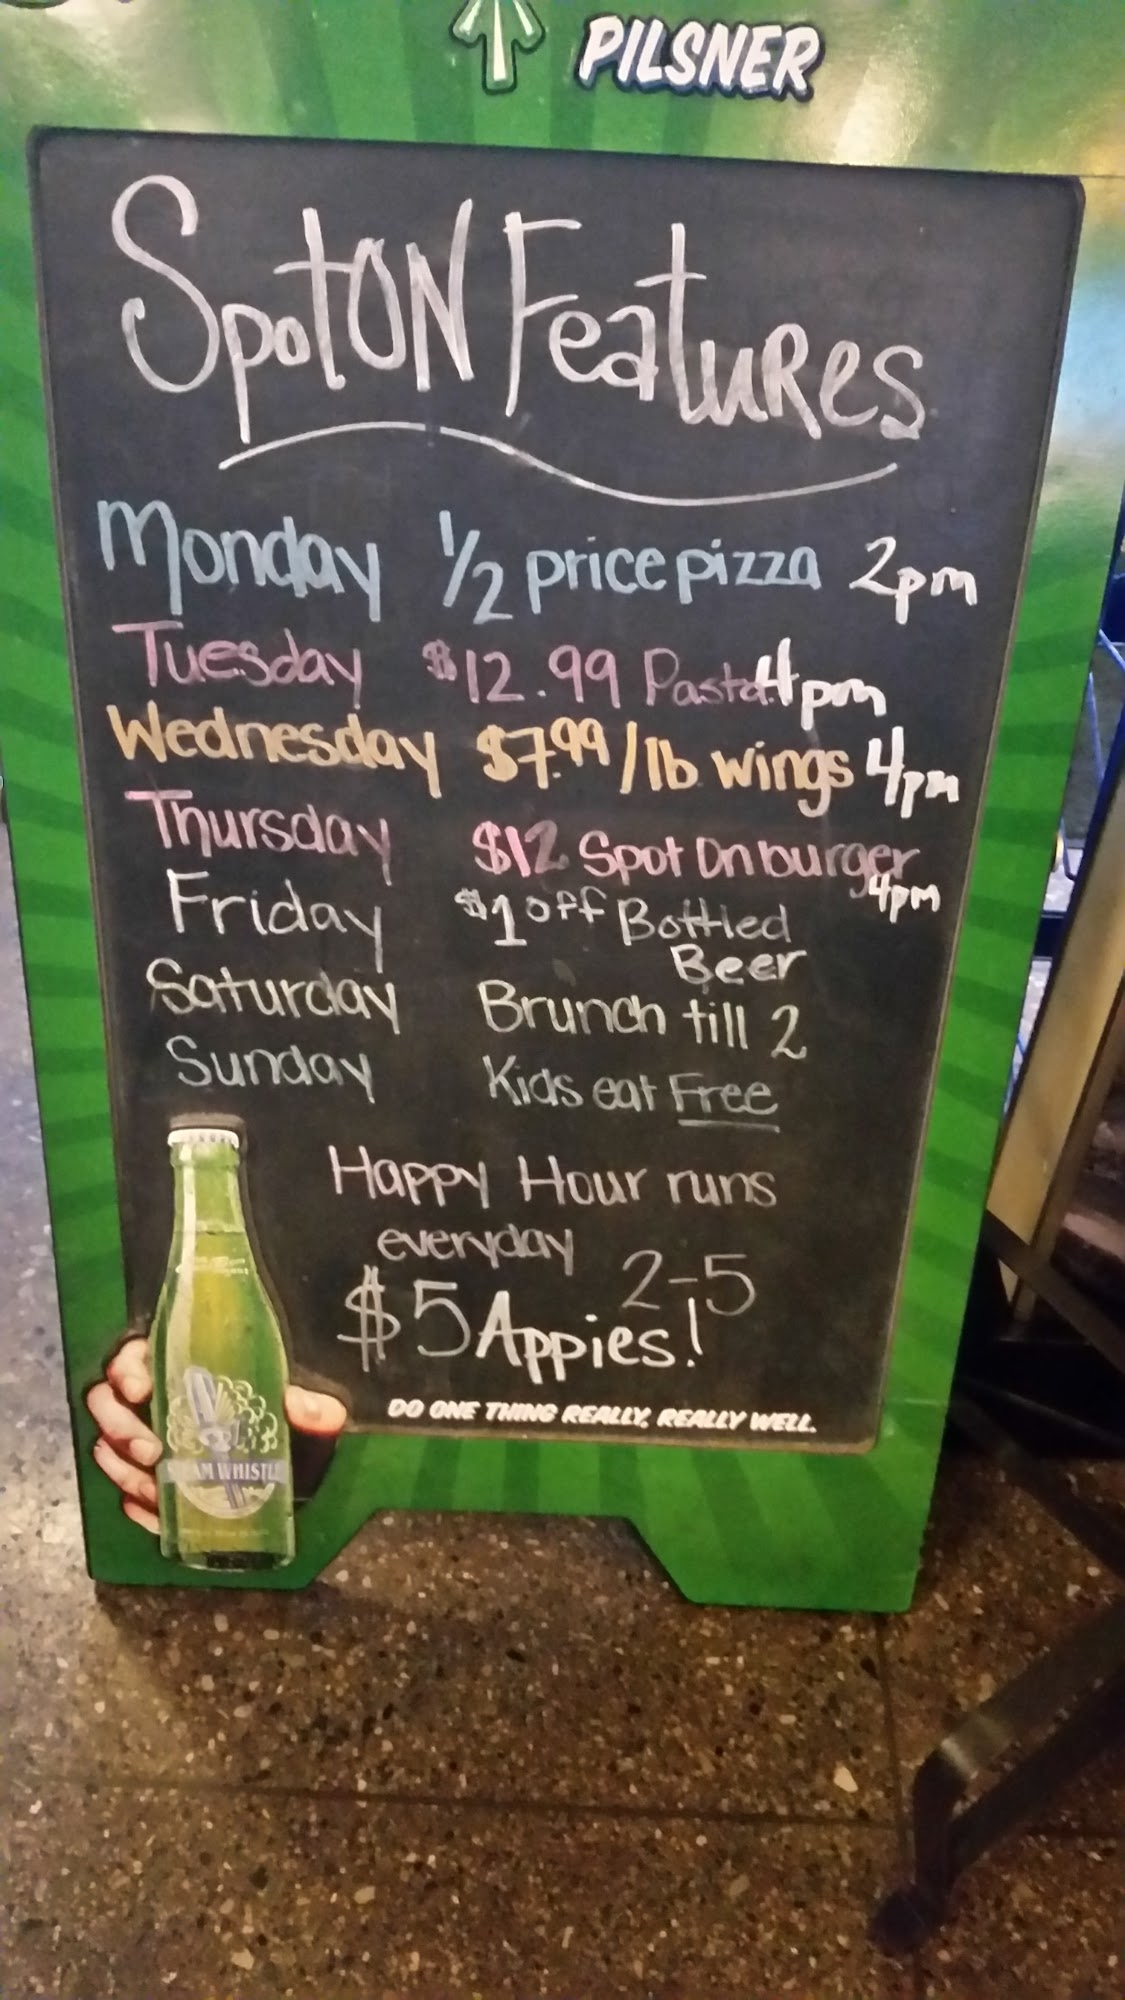 PILSNER
SpotON Features
Monday 1/2 price pizza 2pm
Tuesday $12.99 Pasta 4pm
Wednesday $7.99/lb wings 4pm
Thursday $12 Spot On burger
4pm
Friday $1 off Bottled
Beer
Saturday Brunch till 2
Sunday Kids eat Free
Happy Hour runs
everyday 2-5
$5 Appies!
DO ONE THING REALLY, REALLY WELL.
STEAM WHISTLE